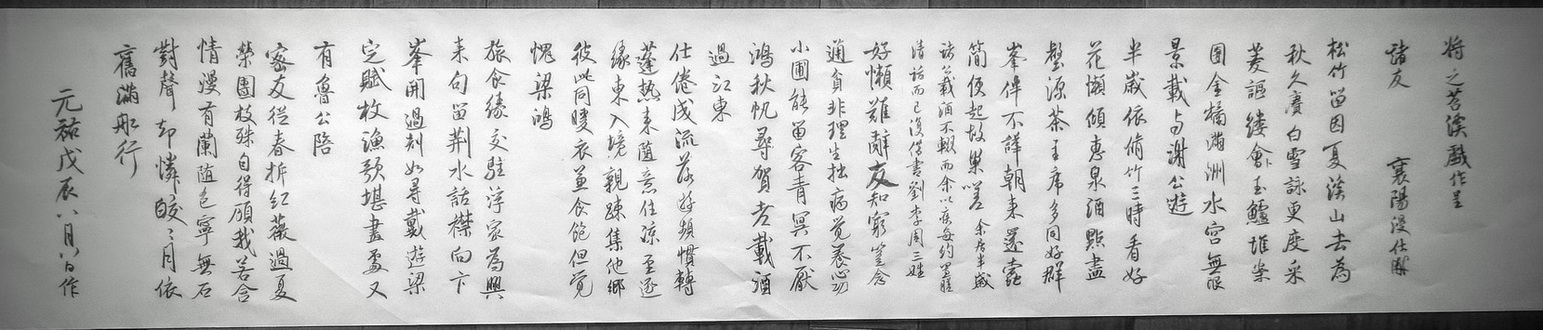 将之苕溪戲作呈
諸友 襄陽漫仕黻
松竹留因夏溪山去為
秋久賡白雪詠更度采
菱謳縷會玉鱸堆案
團金橘滿洲水宮無限
景載與謝公遊
半歲依脩竹三時看好
花懶傾惠泉酒點盡
壑源茶主席多同好群
峯伴不譁朝來還蠹
簡便起故巢嗟 余居半歲
諸公載酒不輟而余以疾每約置膳
清話而已復借書劉李周三姓
好懶難辭友知窮豈念
通貧非理生拙病覺養心功
小圃能留客青冥不厭
鴻秋帆尋賀老載酒
過江東
仕倦成流落游頻慣轉
蓬熱來隨意住涼至逐
緣東入境親疎集他鄉
彼此同暖衣兼食飽但覺
愧梁鴻
旅食緣交駐浮家為興
來句留荊水話襟向卞
峯開過剡如尋戴遊梁
定賦枚漁歌堪畫處又
有魯公陪
密友從春拆紅薇過夏
榮團枝殊自得顧我若含
情漫有蘭隨色寧無石
對聲却憐皎々月依
舊滿舡行
元祐戊辰八月八日作